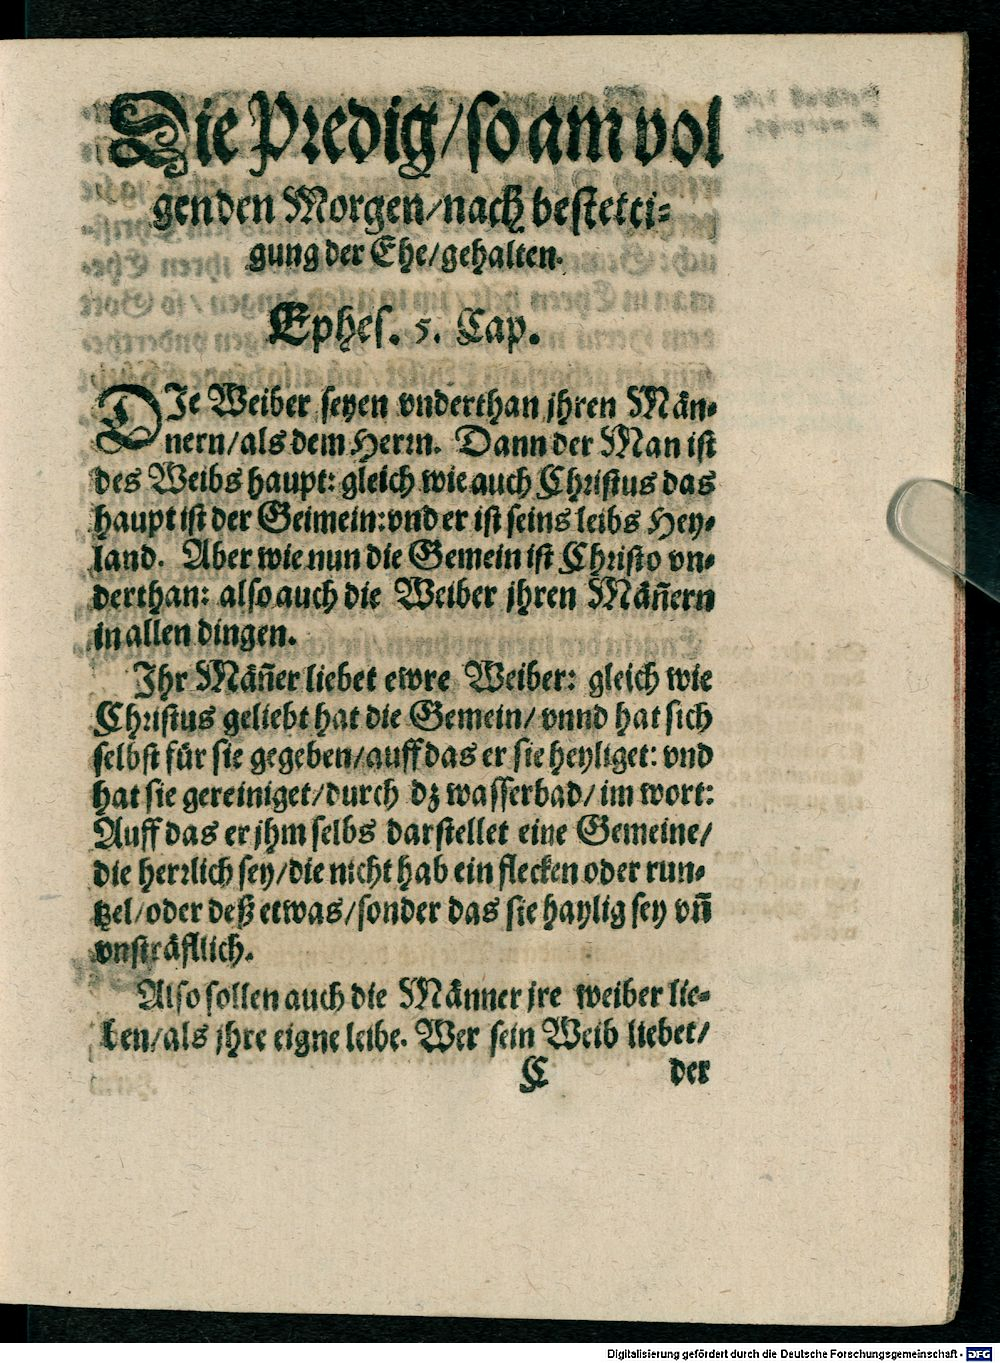 Die Predig/so am vol
genden Morgen/nach bestetti-
gung der Ehe/gehalten.
Ephes. 5. Cap.
DIe Weiber seyen vnderthan jhren Män-
nern/als dem Herrn. Dann der Man ist
des Weibs haupt: gleich wie auch Christus das
haupt ist der Geimein: vnd er ist seins leibs Hey-
land. Aber wie nun die Gemein ist Christo vn-
derthan: also auch die Weiber jhren Mäñern
in allen dingen.
Ihr Mäñer liebet ewre Weiber: gleich wie
Christus geliebt hat die Gemein/ vnnd hat sich
selbst für sie gegeben/auff das er sie heyliget: vnd
hat sie gereiniget/durch dz wasserbad/ im wort:
Auff das er jhm selbs darstellet eine Gemeine/
die herrlich sey/die nicht hab ein flecken oder run-
tzel/oder deß etwas/sonder das sie haylig sey vñ
vnsträfflich.
Also sollen auch die Männer jre weiber lie-
ben/als jhre eigne leibe. Wer sein Weib liebet/
C der
Digitalisierung gefördert durch die Deutsche Forschungsgemeinschaft - DFG